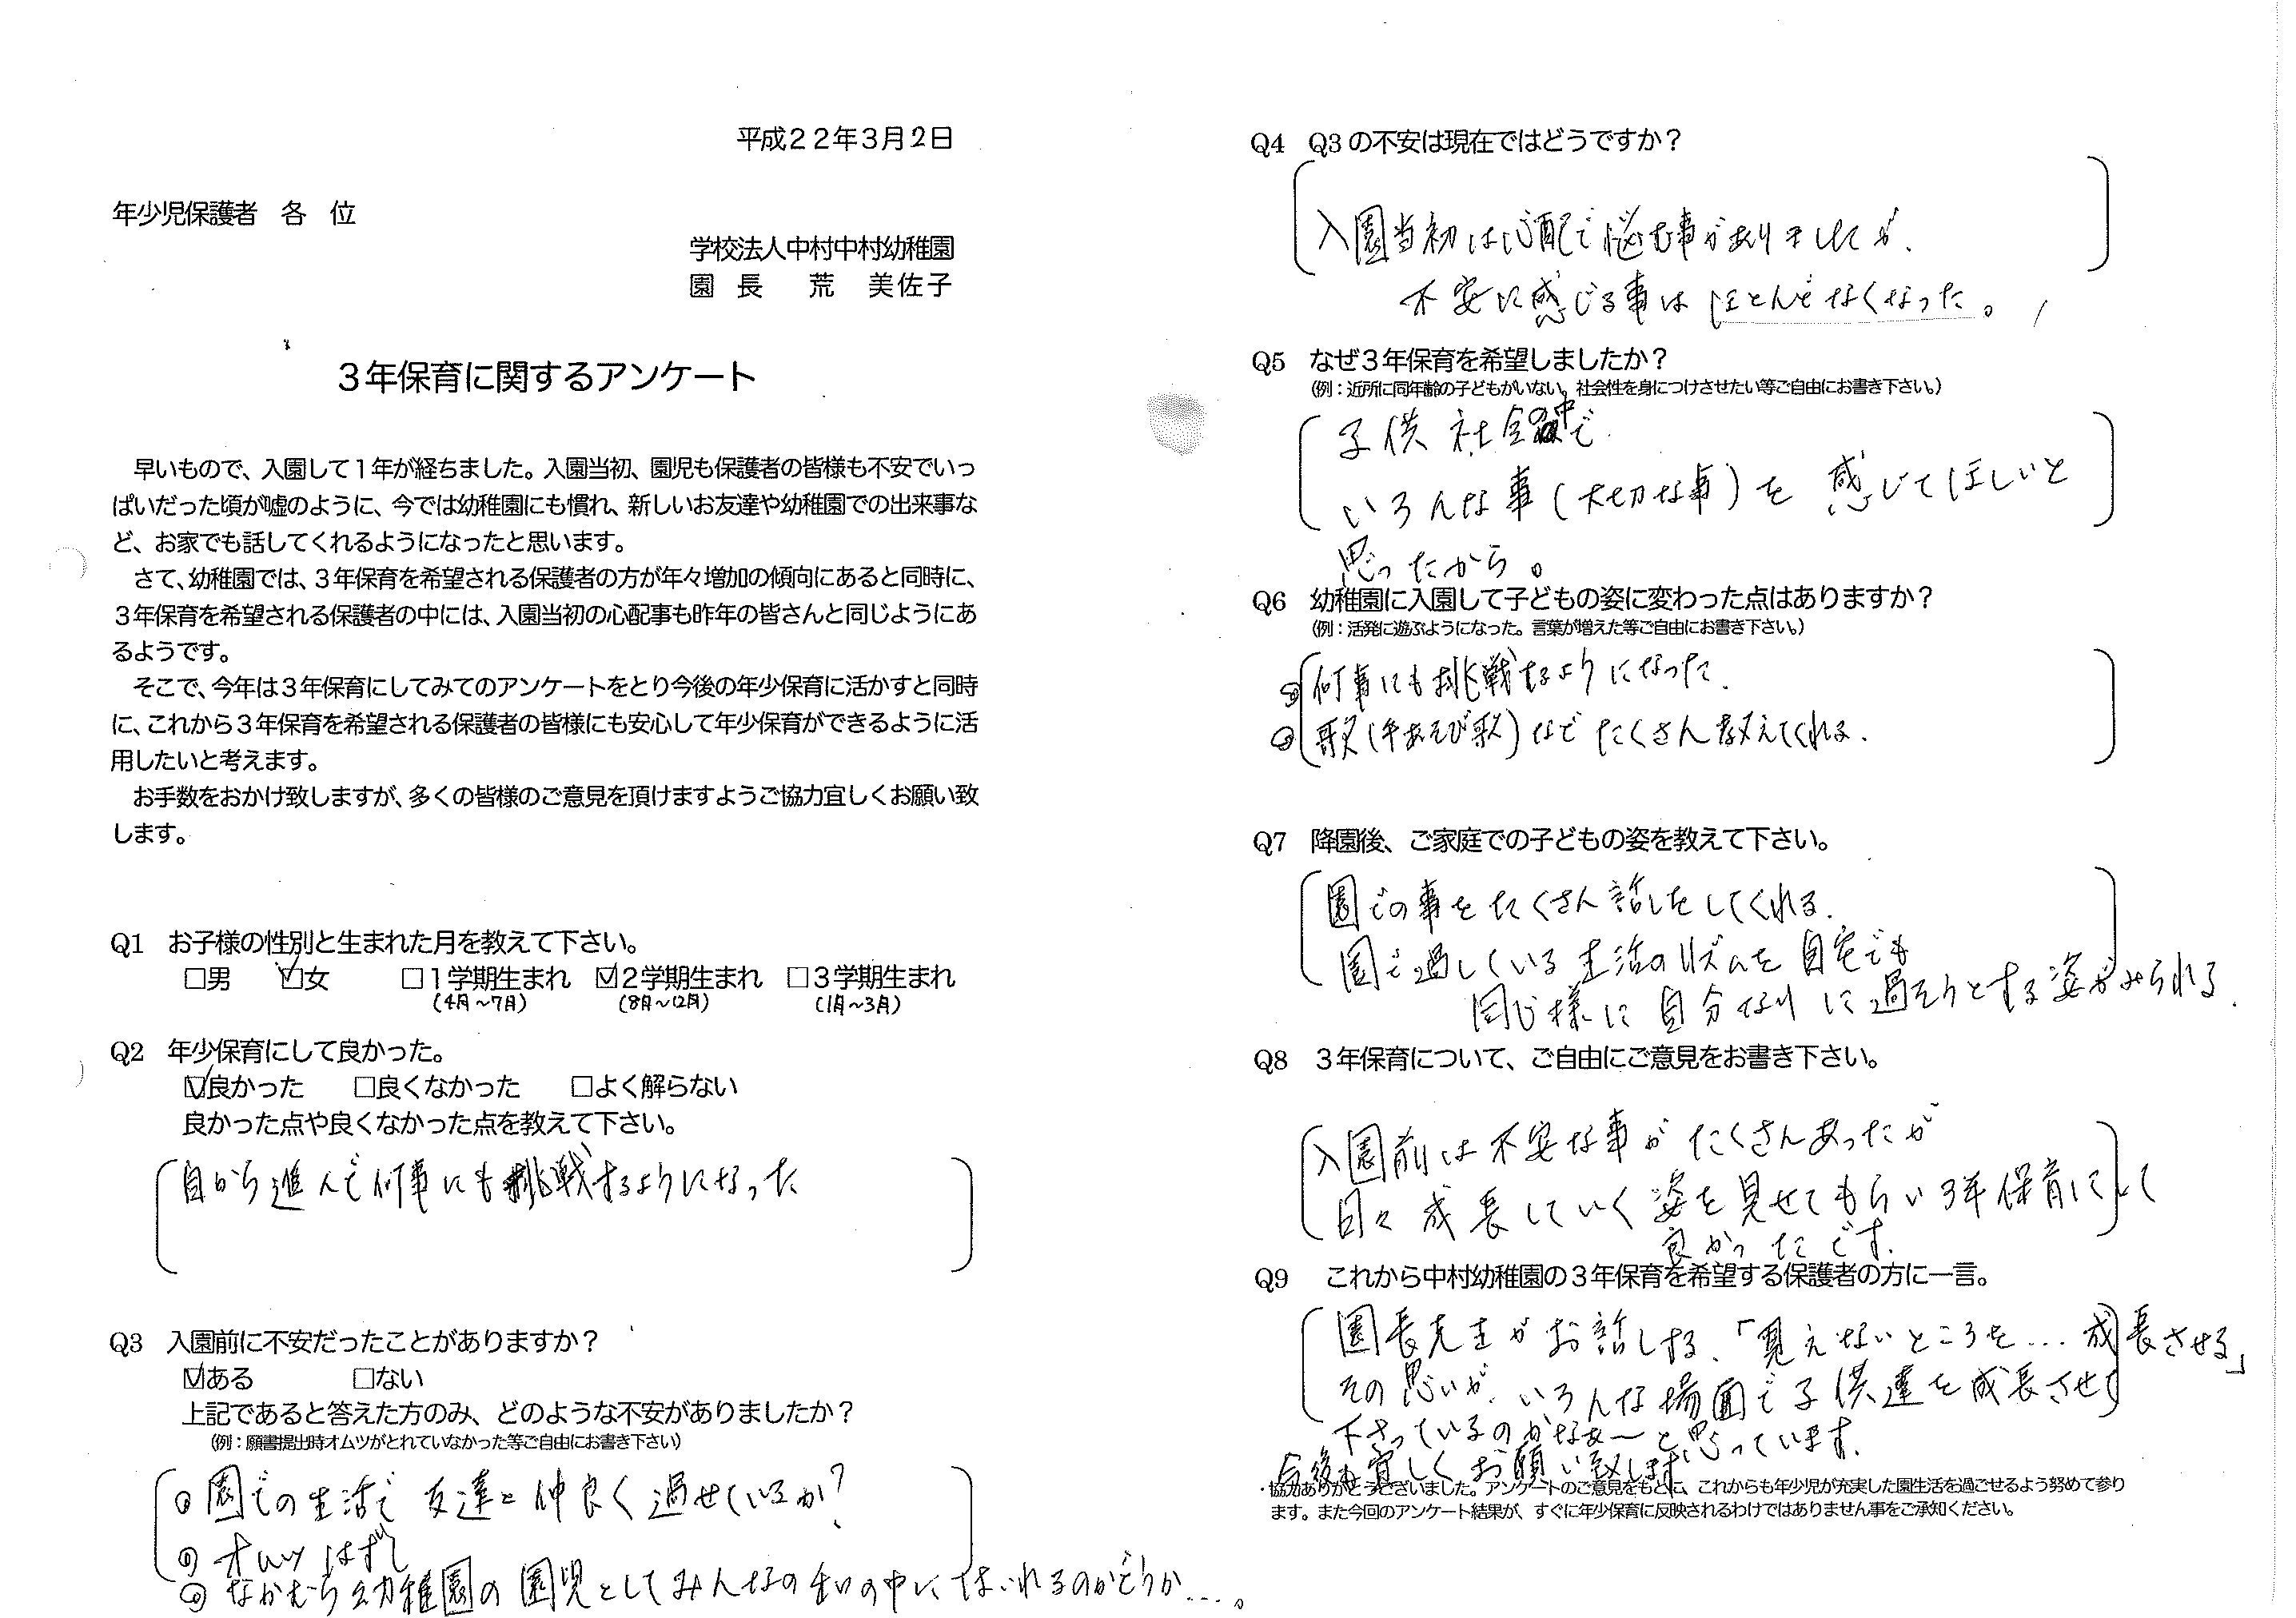 平成22年3月2日
年少児保護者 各 位
学校法人中村中村幼稚園
園 長 荒 美佐子
3年保育に関するアンケート
早いもので、入園して1年が経ちました。入園当初、園児も保護者の皆様も不安でいっ
ぱいだった頃が嘘のように、今では幼稚園にも慣れ、新しいお友達や幼稚園での出来事な
ど、お家でも話してくれるようになったと思います。
さて、幼稚園では、3年保育を希望される保護者の方が年々増加の傾向にあると同時に、
3年保育を希望される保護者の中には、入園当初の心配事も昨年の皆さんと同じようにあ
るようです。
そこで、今年は3年保育にしてみてのアンケートをとり今後の年少保育に活かすと同時
に、これから3年保育を希望される保護者の皆様にも安心して年少保育ができるように活
用したいと考えます。
お手数をおかけ致しますが、多くの皆様のご意見を頂けますようご協力宜しくお願い致
します。
Q1 お子様の性別と生まれた月を教えて下さい。
□男 ☑女 □1学期生まれ ☑2学期生まれ □3学期生まれ
(4月~7月) (8月~12月) (1月~3月)
Q2 年少保育にして良かった。
☑良かった □良くなかった □よく解らない
良かった点や良くなかった点を教えて下さい。
自から進んで何事にも挑戦するようになった
Q3 入園前に不安だったことがありますか?
☑ある □ない
上記であると答えた方のみ、どのような不安がありましたか?
(例:願書提出時オムツがとれていなかった等ご自由にお書き下さい)
◎園での生活で 友達と仲良く過せているか?
◎オムツはずし
◎なかむら幼稚園の園児としてみんなの和の中に はいれるのかどうか…。
Q4 Q3の不安は現在ではどうですか?
入園当初は心配で悩む事がありましたが、
不安に感じる事はほとんどなくなった。
Q5 なぜ3年保育を希望しましたか?
(例:近所に同年齢の子どもがいない。社会性を身につけさせたい等ご自由にお書き下さい。)
子供社会の中で
いろんな事(大切な事)を 感じてほしいと
思ったから。
Q6 幼稚園に入園して子どもの姿に変わった点はありますか?
(例:活発に遊ぶようになった。言葉が増えた等ご自由にお書き下さい。)
◎何事にも挑戦するようになった。
◎歌(手あそび歌)など たくさん教えてくれる。
Q7 降園後、ご家庭での子どもの姿を教えて下さい。
園での事をたくさん話しをしてくれる。
園で過している生活のリズムを 自宅でも
同じ様に 自分なりに過そうとする姿がみられる。
Q8 3年保育について、ご自由にご意見をお書き下さい。
入園前は不安な事がたくさんあったが
日々成長していく姿を見せてもらい3年保育にして
良かったです。
Q9 これから中村幼稚園の3年保育を希望する保護者の方に一言。
園長先生がお話しする、「見えないところを…成長させる」
その思いが、いろんな場面で子供達を成長させて
下さっているのかなぁーと思っています。
今後も宜しくお願い致します。
協力ありがとうございました。アンケートのご意見をもとに、これからも年少児が充実した園生活を過ごせるよう努めて参り
ます。また今回のアンケート結果が、すぐに年少保育に反映されるわけではありません事をご承知ください。